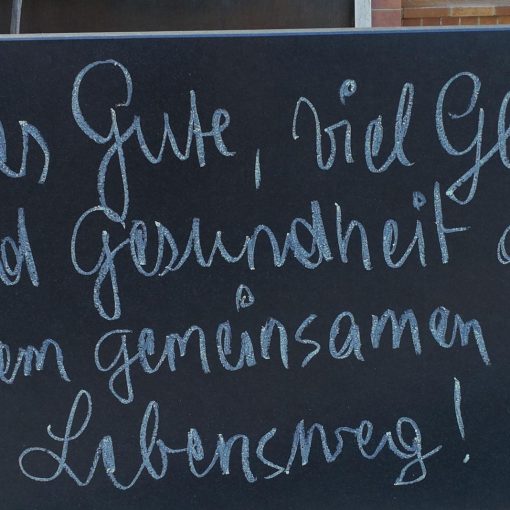 es Gute, viel Gl
d Gesundheit a
em gemeinsamen
Lebensweg!